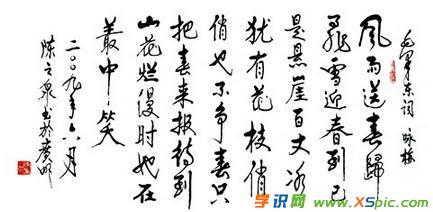 毛泽东词 咏梅
風雨送春歸
飛雪迎春到已
是悬崖百丈冰
犹有花枝俏
俏也不争春只
把春来报待到
山花烂漫时她在
叢中笑
二〇〇九年六月
陈之泉书於
学识网
www.XSpic.com